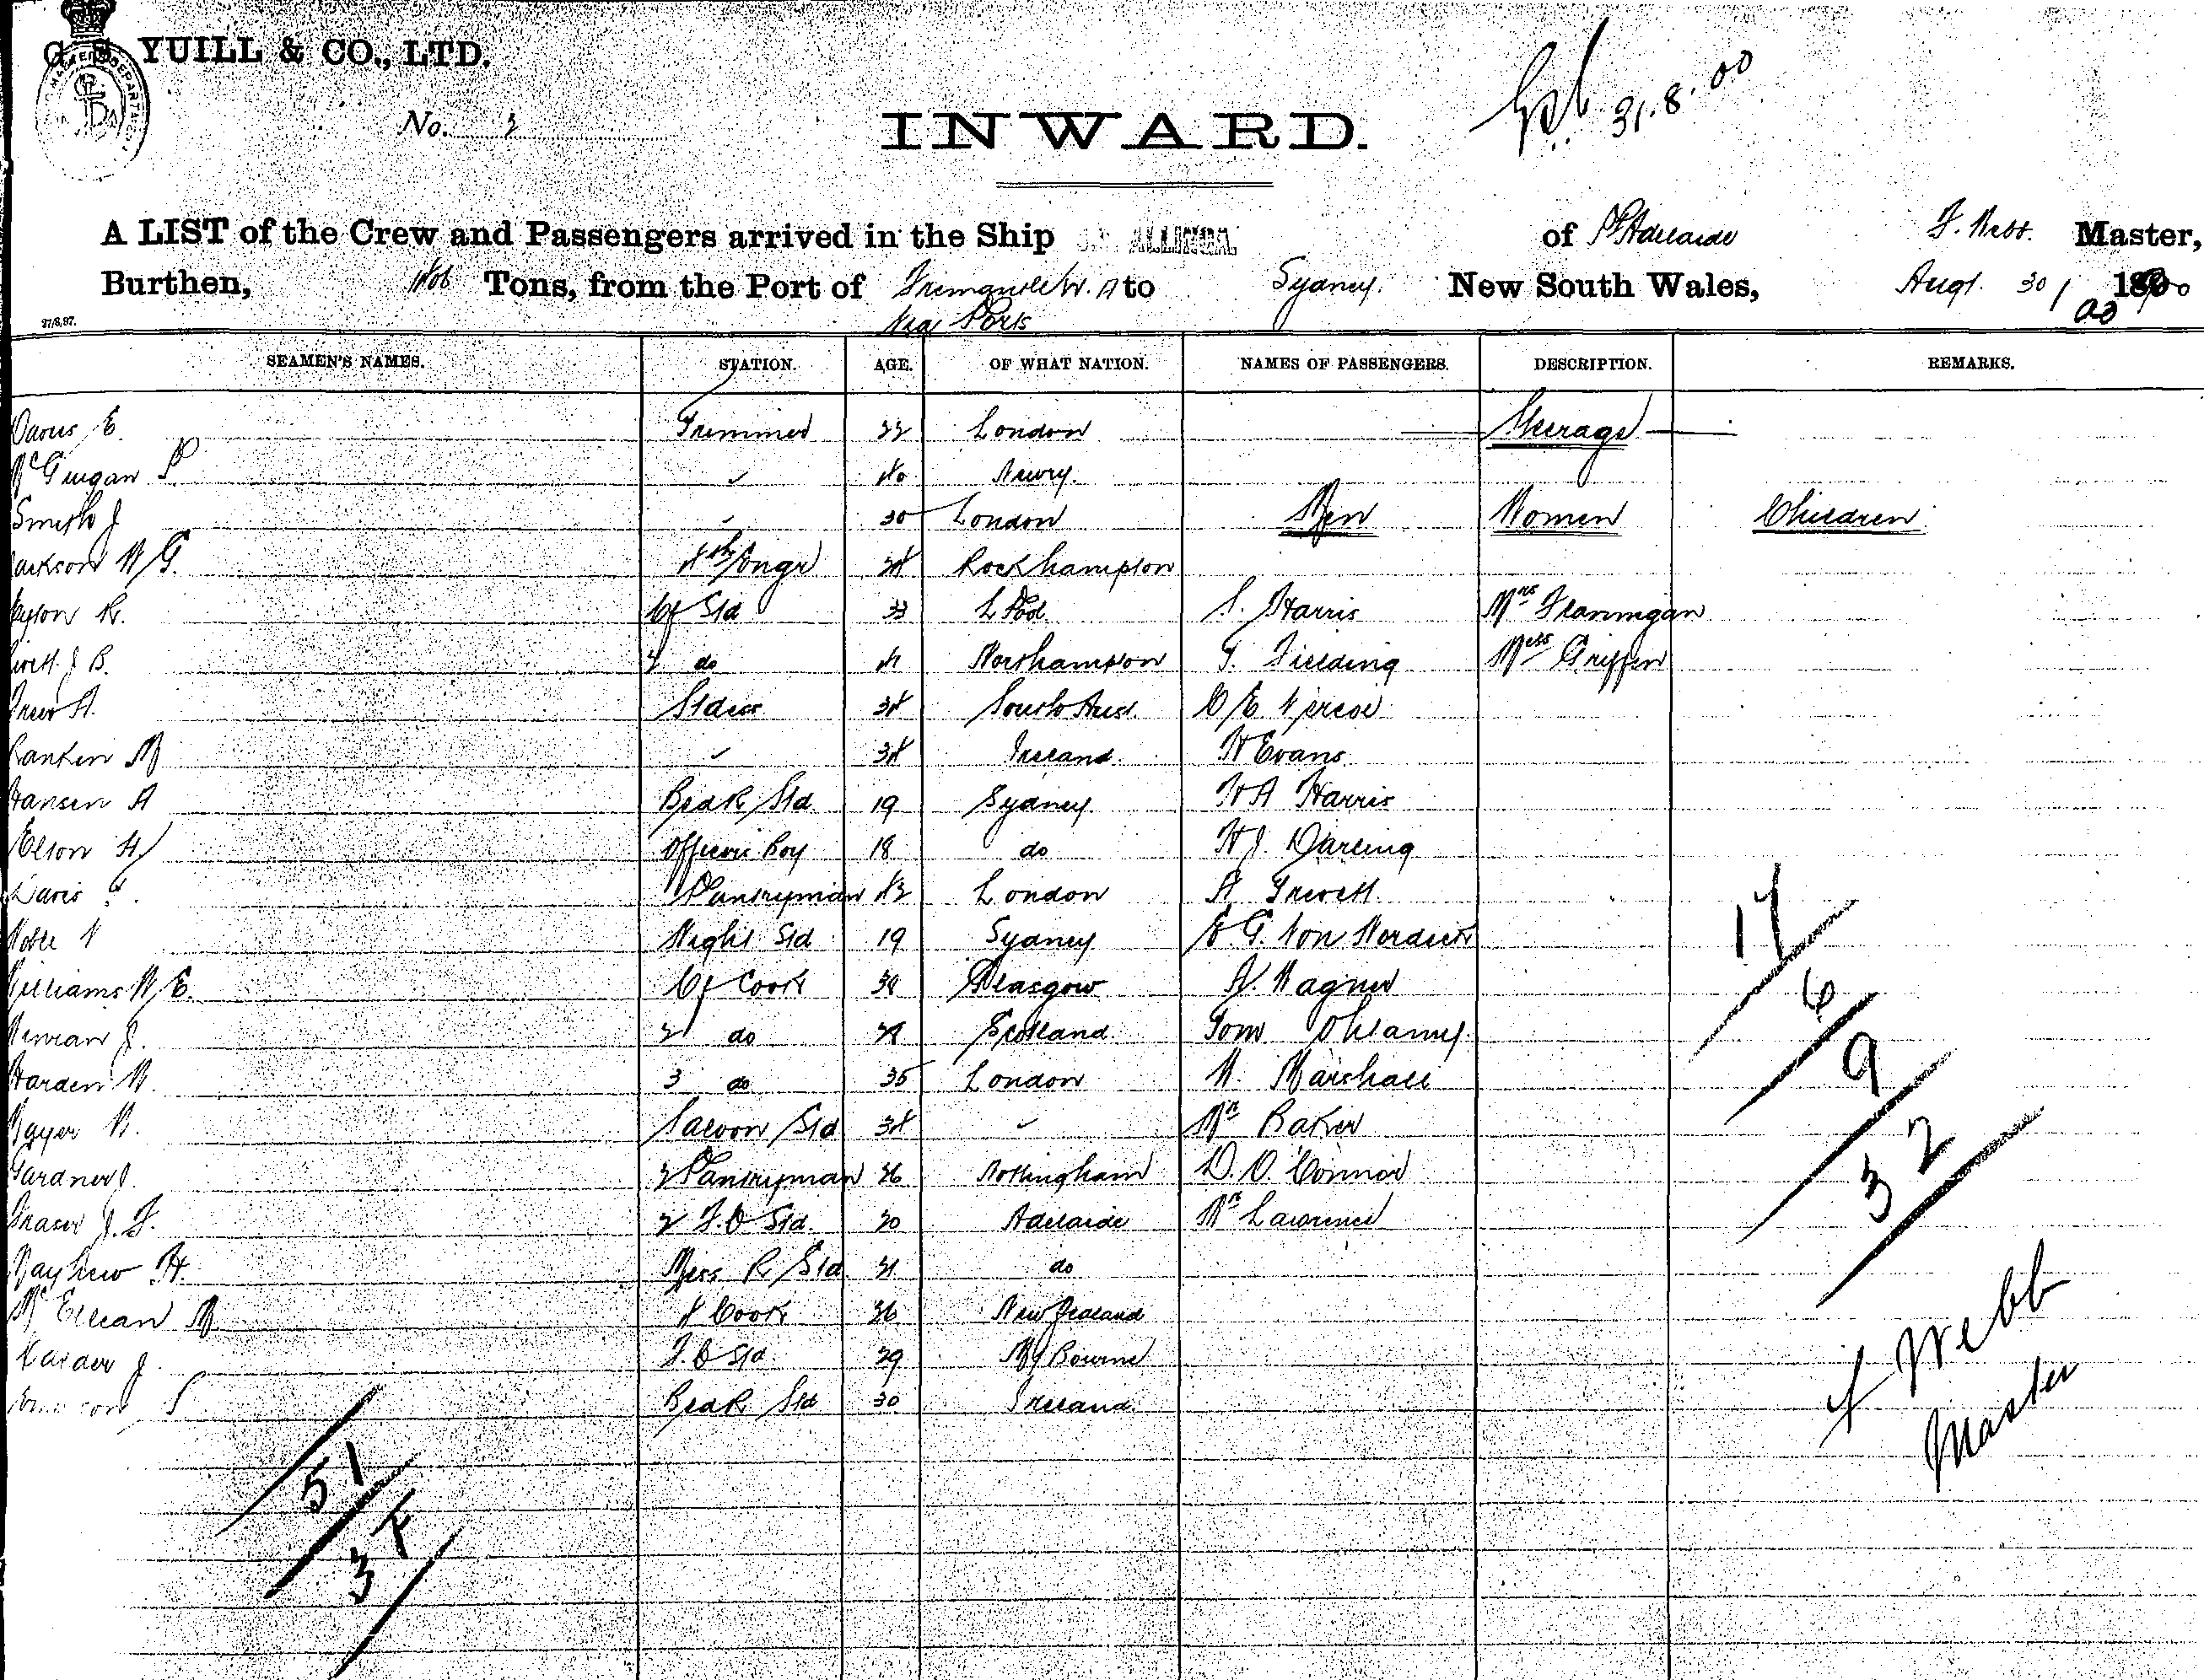 G. S. YUILL & CO., LTD.
No. 2
INWARD.
31.8.00
A LIST of the Crew and Passengers arrived in the Ship S.S. ALLINGA. of Pt Adelaide F. Webb. Master,
Burthen, Tons, from the Port of Fremantle W.A to Sydney. New South Wales, Augt. 30/ 00
Via Ports
27/8/97.
SEAMEN'S NAMES. STATION. AGE. OF WHAT NATION. NAMES OF PASSENGERS. DESCRIPTION. REMARKS.
Davies E. Trimmer 22 London Steerage
McGuigan P. ✓ 40 Newry.
Smith J ✓ 30 London Men Women Children
Jackson W G. 4th Engr 24 Rockhampton
R. Cf Std 33 L'Pool S. Harris Mrs Flannigan
J B. 2 do Northampton T. Fielding Griffin
A. Stdess 34 South Aust. D E
Rankin M ✓ 34 Ireland. W Evans.
Hansen A BedR Std 19 Sydney. W A Harris
Elson H Officers Boy 18 do W J. Darling
Davis Pantryman 42 London A Trevett.
Noble V Night Std 19 Sydney G. Von
Williams W E. Cf Cook Glasgow Wagner
J. 2 do Scotland. Tom
Harden W. 3 do 35 London W. Marshall
Mayer W. Saloon Std 34 ✓ Mr Baker
Gardner J. 2 Pantryman 26 Nottingham D. O'Connor
Fraser J. F. 2 F.C Std. 20 Adelaide Mr Lawrence
Mayhew H. Mess R Std 21 do
Mc M 4 Cook 26 New Zealand
J. F. C Std. 29 M'Bourne
S BedR Std 30 Ireland.
17
6
9
32
F Webb
Master
51
3 F